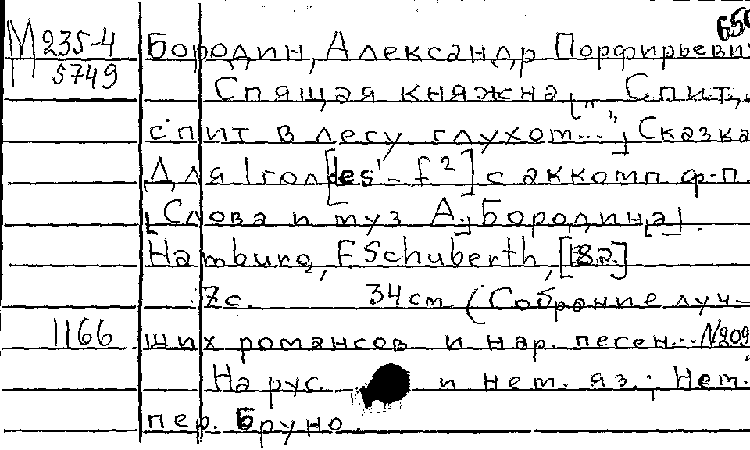 650
М 235-4 Бородин, Александр Порфирьеви
5749
Спящая княжна [„Спит,
спит в лесу глухом..."] Сказка
Для 1 гол [es' - f²] с аккомп ф-п.
[Слова и муз А.] Бородин[а].
Hamburg, F Schuberth, [182]
7с. 34 cm (Собрание луч-
1166 ших романсов и нар. песен... №209
На рус. и нем. яз.; Нем.
пер. Бруно.